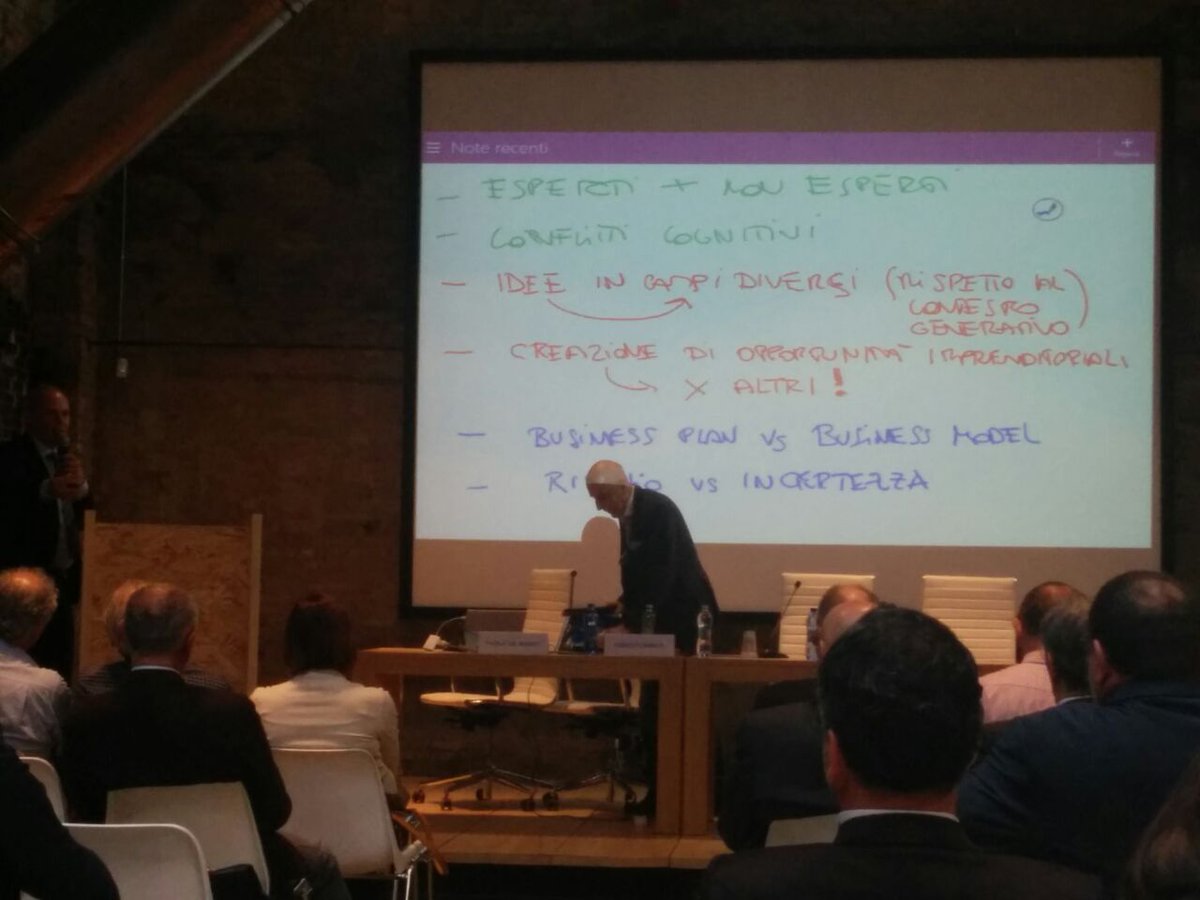 Note recenti
– ESPERTI + NON ESPERTI
– CONFLITTI COGNITIVI
– IDEE IN CAMPI DIVERSI (RISPETTO AL
CONTESTO
GENERATIVO)
– CREAZIONE DI OPPORTUNITÀ IMPRENDITORIALI
X ALTRI!
– BUSINESS PLAN VS BUSINESS MODEL
– VS INCERTEZZA